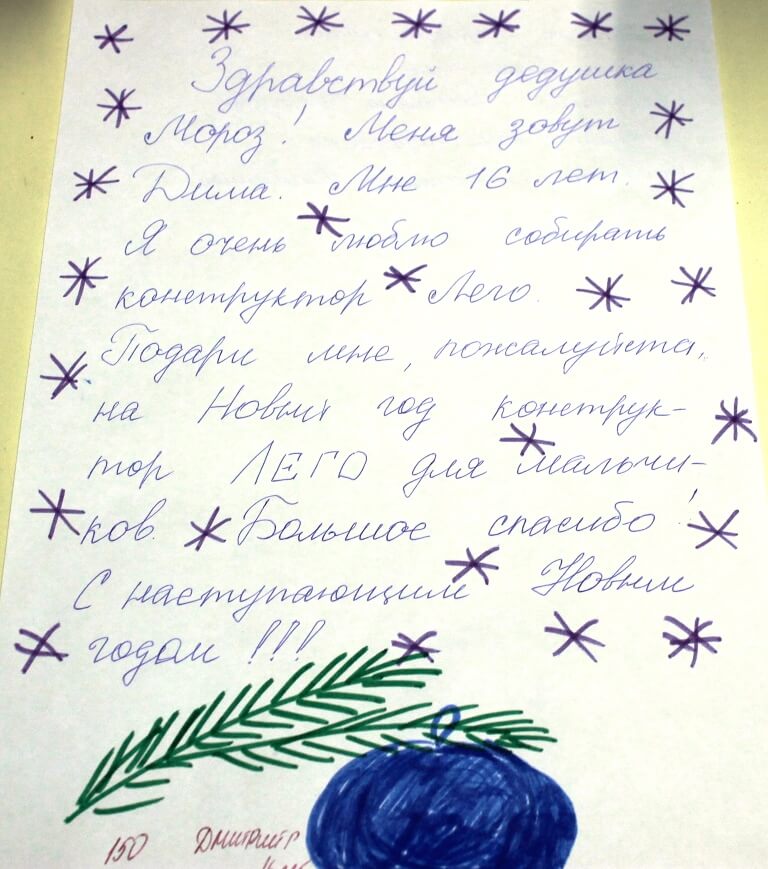 Здравствуй дедушка
Мороз! Меня зовут
Дима. Мне 16 лет.
Я очень люблю собирать
конструктор Лего.
Подари мне, пожалуйста,
на Новый год конструк-
тор ЛЕГО для мальчи-
ков. Большое спасибо!
С наступающим Новым
годом!!!
150 Дмитрий